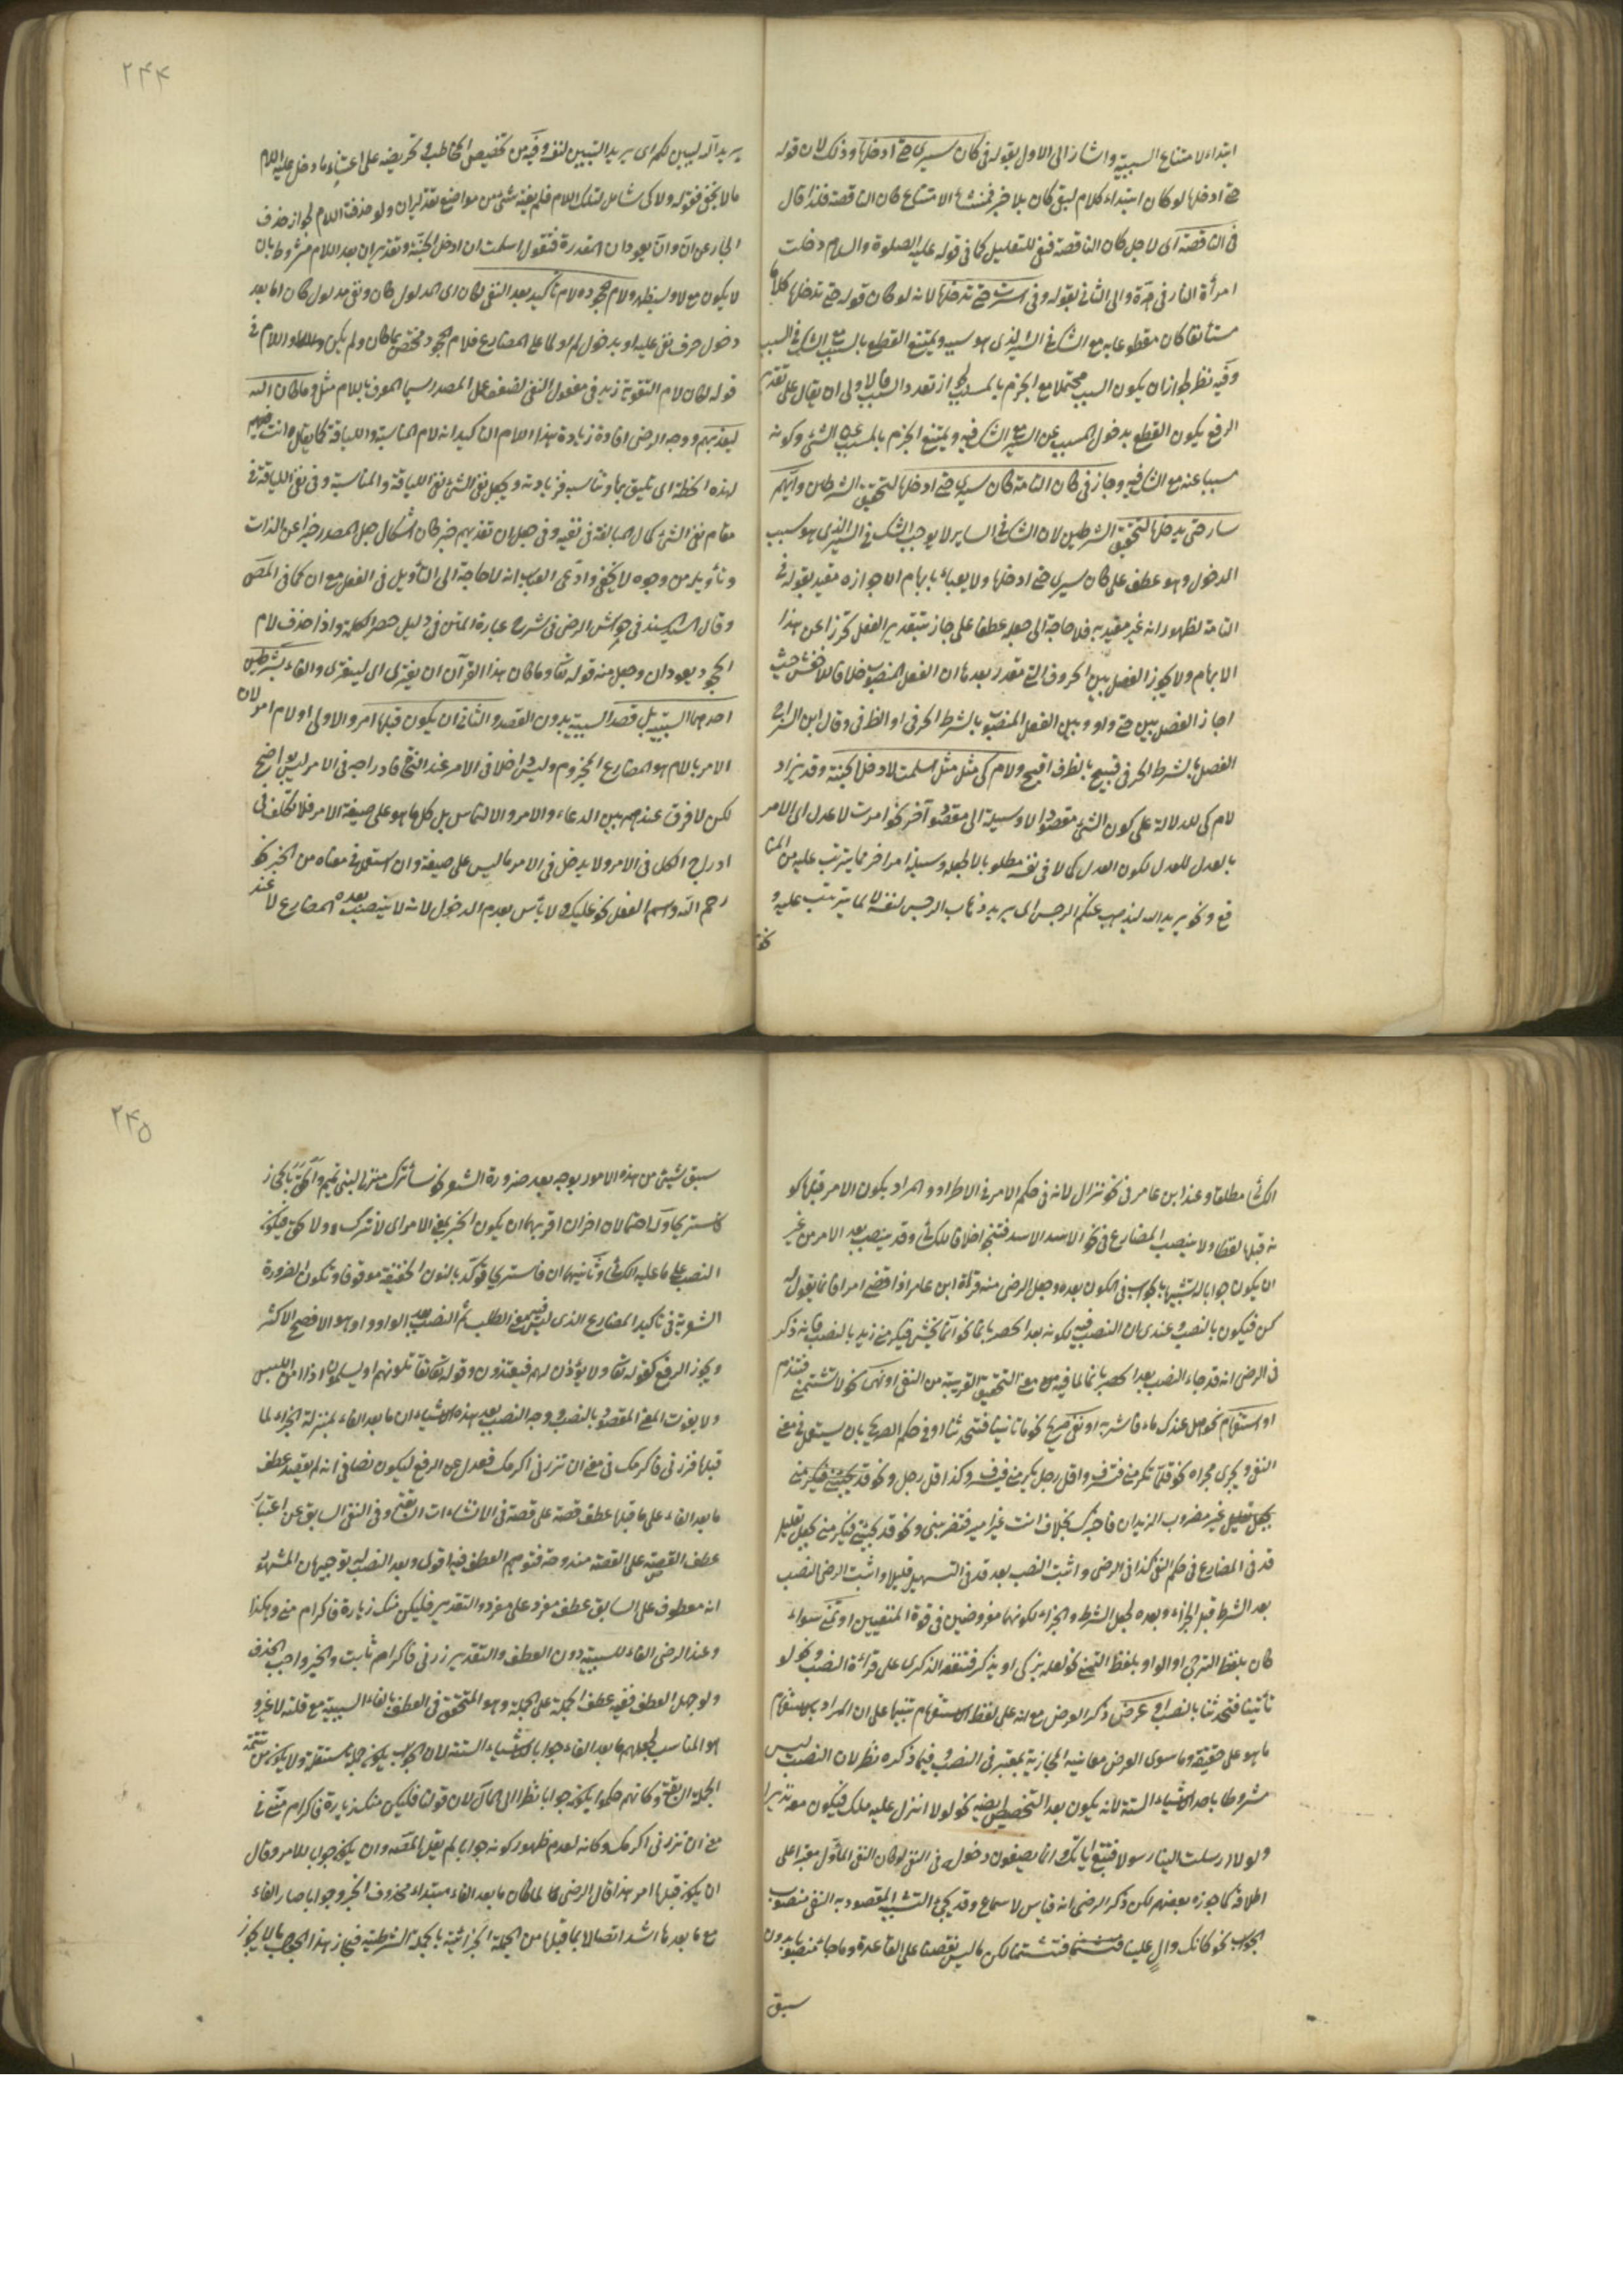 ٢۴۴
ابتداء لامتناع السببية واشار الى الاول بقوله فى كان سيرى حتى ادخلها وذلك لان قوله
حتى ادخلها لو كان ابتداء كلام لبقى كان بلا خبر فمنشأ الامتناع كان الناقصة فلذا قال
فى الناقصة اى لاجل كان الناقصة ففى للتعليل كما فى قوله عليه الصلوة والسلام دخلت
امرأة النار فى هرة والى الثانى بقوله وفى أسرت حتى تدخلها لانه لو كان قوله حتى تدخلها كلاما
مستأنفا كان مقطوعا به مع الشك فى السير الذى هو سببه ويمتنع القطع بالمسبب مع الشك فى السبب
وفيه نظر لجواز ان يكون السبب محتملا مع الجزم بالمسبب لجواز تعدد السبب فالاولى ان يقال على تقدير
الرفع يكون القطع بدخول المسبب عن السير مع الشك فيه ويمتنع الجزم بالمسبب عن الشئ وكونه
مسببا عنه مع الشك فيه وجاز فى كان التامة كان سيرى حتى ادخلها لتحقق الشرطين وايهم
سار حتى يدخلها لتحقق الشرطين لان الشك فى الساير لا يوجب الشك فى السير الذى هو سبب
الدخول وهو عطف على كان سيرى حتى ادخلها ولا يعبأ بابهام ان جوازه مقيد بقوله فى
التامة لظهور انه غير مقيد به فلا حاجة الى جعله عطفا على جاز بتقدير الفعل تحرزا عن هذا
الابهام ولا يجوز الفصل بين الحروف التى تقدر بعدها ان الفعل المنصوب خلافا للاخفش حيث
اجاز الفصل بين حتى واو وبين الفعل المنصوب بالشرط الحرفى او الظرفى وقال ابن السراج
الفصل بالشرط الحرفى قبيح بالظرف اقبح ولام كى مثل مثل اسلمت لادخل الجنة وقد يزاد
لام كى للدلالة على كون الشئ مقصودا لا وسيلة الى مقصود آخر نحو امرت لاعدل اى الامر
بالعدل للعدل لكون العدل كمالا فى نفسه مطلوبا لا لجعله وسيلة امر اخر مما يترتب عليه من المنا
فع ونحو يريد الله ليذهب عنكم الرجس اى يريد ذهاب الرجس لنفسه لا لما يترتب عليه و
نحو
يريد الله ليبين لكم اى يريد التبيين لنفسه وفيه من تخصيص المخاطب وتحريضه على اعتناء ما دخل عليه اللام
ما لا يخفى فقوله ولا كى شامل لتلك اللام فلم يفته شئ من مواضع تقدير ان ولو حذفت اللام لجواز حذف
الجار عن ان وان يعود ان المقدرة فتقول اسلمت ان ادخل الجنة وتقدير ان بعد اللام مشروط بان
لا يكون مع لا وليظهر ولام جحود ه لام تأكيد بعد النفى لكان اى لمدلول كان ونفى مدلول كان اما بعد
دخول حرف نفى عليه او بدخول لم او لما على المضارع فلام الجحود مختص بما كان ولم يكن واللام فى
قوله لكان لام التقوية زيد فى مفعول النفى لضعف عمل المصدر سيما المعرف باللام مثل وما كان الله
ليعذبهم ووجه الرضى افادة زيادة هذا اللام التأكيد انه لام المناسبة واللياقة كما يقال وانت فيهم
لهذه الخطة اى تليق بها وتناسب فزيادته وجعل نفى الشئ نفى اللياقة والمناسبة وفى نفى اللياقة فى
مقام نفى الشئ كمال المبالغة فى نفيه وفى جعل ان تعذبهم خبر كان اشكال جعل المصدر خبرا عن الذات
وتأويله من وجوه لا يخفى وادعى انه لا حاجة الى التأويل فى الفعل مع ان كما فى المصدر
وقال السيد السند فى حواشى الرضى فى شرح عبارة المتن فى دليل حصر الكلمة واذا حذف لام
الجحود يعود ان وجعل منه قوله تعا وما كان هذا القرآن ان يفترى اى ليفترى والفاء بشرطين
احدهما السببية بل قصد السببية بدون القصد والثانى ان يكون قبلها امر والاولى او لام امر لان
الامر باللام هو المضارع المجزوم وليس داخلا فى الامر عند النحاة فادراجه فى الامر ليس بواضح
لكن لا فرق عندهم بين الدعاء والامر والالتماس بل كل ما هو على صيغة الامر فلا تكلف فى
ادراج الكل فى الامر ولا يدخل فى الامر ما ليس على صيغته وان استعمل فى معناه من الخبر نحو
رحم الله واسم الفعل نحو عليك ولا بأس بعدم الدخول لانه لا ينتصب بعده المضارع لا عند
٢۴۵
الكسا مطلقا وعند ابن عامر فى نحو نزال لانه فى حكم الامر فى الاطراد والمراد بكون الامر قبلها كو
نه قبلها لفظا ولا ينصب المضارع فى نحو الاسد الاسد فتنجو خلافا للكسائى وقد ينصب بعد الامر من غير
ان يكون جوابا له تشبيها بالجواب فى الكون بعده وجعل الرضى منه قراءة ابن عامر اذا قضى امرا فانما يقول له
كن فيكون بالنصب وعندى ان النصب فيه لكونه بعد الحصر بانما نحو انما يخشى فيكرمنى زيد بالنصب فانه ذكر
فى الرضى انه قد جاء النصب بعد الحصر بانما لما فيه من معنى التحقير القريبة من النفى او نهى نحو لا تشتمنى فتندم
او استفهام نحو هل عندك ماء فاشربه او نفى صريح نحو ما تأتينا فتحدثنا او فى حكم الصريح بان يستعمل فى معنى
النفى ويجرى مجراه نحو قلما تكرمنى فتشرف واقل رجل يكرمنى فيشرف وكذا قل رجل ونحو قد يجيئنى فيكرمنى
بجعل تقليل غير مضروب الزيدان فاخبرك بخلاف انت غير امير فتضربنى ونحو قد يجيئنى فيكرمنى بجعل تقليل
قد فى المضارع فى حكم النفى كذا فى الرضى واثبت النصب بعد قد فى التسهيل قليلا واثبت الرضى النصب
بعد الشرط قبل الجزاء وبعده لجعل الشرط والجزاء لكونهما مفروضين فى قوة المنفيين او تمنى سواء
كان بلفظ الترجى او الواو بلفظ التمنى نحو لعله يزكى او يذكر فتنفعه الذكرى على قراءة النصب ونحو لو
تأتينا فتحدثنا بالنصب او عرض ذكر العرض مع انه على لفظ الاستفهام تنبيها على ان المراد بالاستفهام
ما هو على حقيقته وما سوى العرض معانيه المجازية يعتبر فى النصب وفيما ذكره نظر لان النصب ليس
مشروطا باحد الاشياء الستة لانه يكون بعد التحضيض ايضا نحو لولا انزل عليه ملك فيكون معه نذيرا
ولولا ارسلت الينا رسولا فنتبع آياتك وانما يصفون دخوله فى النفى لو كان النفى المأول معتبرا على
اطلاقه كما جوزه بعضهم لكن ذكر الرضى انه قياس لا سماع وقد يجئ التشبيه المقصود به النفى منصوب
الجواب نحو كانك والٍ علينا فتشتمنا لكن ما ليس نقصنا على القاعدة وما جاء منصوبا بدون
سبق
سبق شئ من هذه الامور يوجه بعد ضرورة الشعر نحو سأترك منزلى لبنى تميم والحق بالحجاز
فاستريحا وله احتمالان اخران اقربهما ان يكون الخبر بمعنى الامر اى لاترك ولالحق فيكون
النصب على ما عليه الكسائى وثانيهما ان فاستريحا مؤكد بالنون الخفيفة موقوفا وتكون الضرورة
الشعرية فى تأكيد المضارع الذى ليس فيه معنى الطلب ثم النصب بعد الواو او هو الافصح الاكثر
ويجوز الرفع كقوله تعا ولا يؤذن لهم فيعتذرون وقوله تعا تقاتلونهم او يسلمون اذا امن اللبس
ولا يفوت المعنى المقصود بالنصب ووجه النصب بعد هذه الاشياء ان ما بعد الفاء بمنزلة الجزاء لما
قبلها فزرنى فاكرمك فى معنى ان تزرنى اكرمك فعدل عن الرفع ليكون نصا فى انه لم يقصد عطف
ما بعد الفاء على ما قبلها عطف قصة على قصة فى الانشاءات السابقة وفى النفى السابق عن اعتبار
عطف القصة على القصة مندوحة فتوهم العطف فيه اقوى وبعد النصب له توجيهان المشهور
انه معطوف على السابق عطف مفرد على مفرد والتقدير فليكن منك زيارة فاكرام منى وهكذا
وعند الرضى الفاء للسببية دون العطف والتقدير زرنى فاكرام ثابت والخبر واجب الحذف
ولو جعل العطف ففيه عطف الجملة على الجملة وهو المتحقق فى العطف بالفاء السببية مع قلته لا غير و
هو المناسب لجعلهم ما بعد الفاء جوابا للاشياء الستة لان الجواب يكون جملة مستقلة ولا يكون من تتمة
الجملة السابقة وكانهم حكموا بكونه جوابا نظرا الى المآل لان قولنا فليكن منك زيارة فاكرام منى فى
معنى ان تزرنى اكرمك وكانه لعدم ظهور كونه جوابا لم يقل المصنف وان يكون جواب الامر وقال
ان يكون قبلها امر هذا قال الرضى لما كان ما بعد الفاء مبتداء محذوف الخبر وجوابا صار الفاء
مع ما بعدها اشد اتصالا بما قبلها من الجملة الجزائية بالجملة الشرطية فجاز بهذا الجواب ما لا يجوز